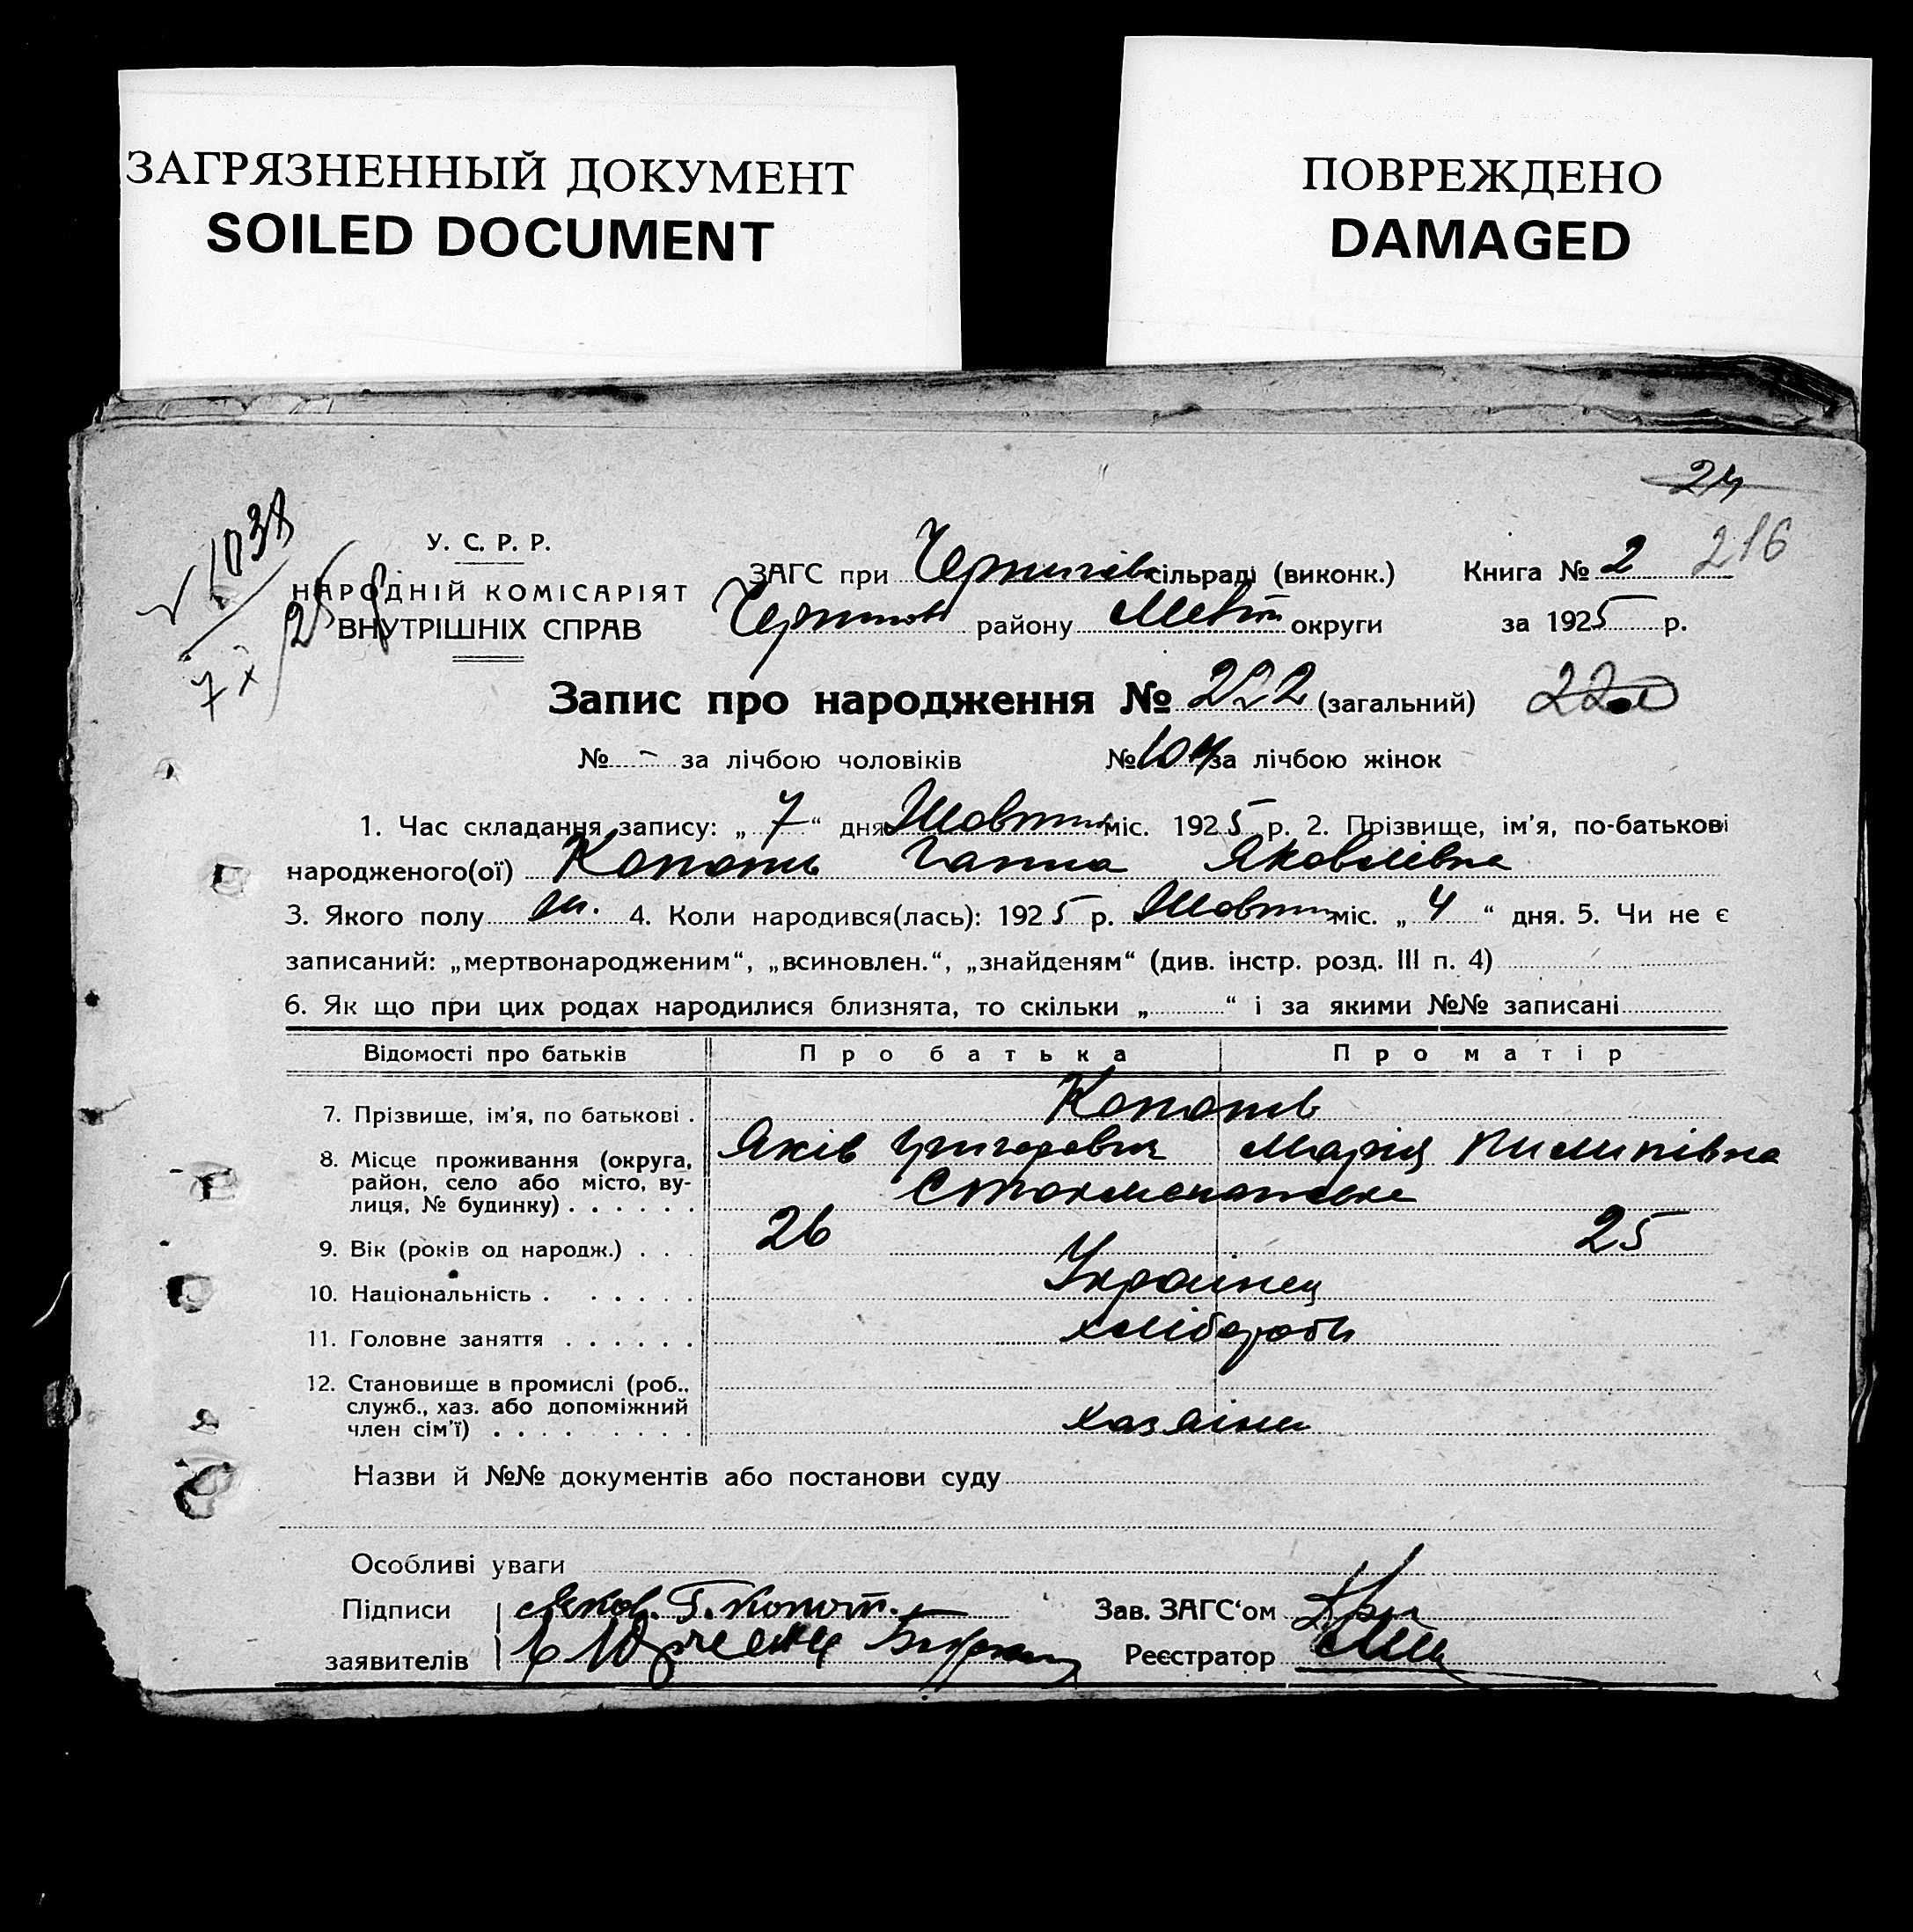 ЗАГРЯЗНЕННЫЙ ДОКУМЕНТ
SOILED DOCUMENT
ПОВРЕЖДЕНО
DAMAGED
24
216
1038
У. С. Р. Р.
НАРОДНІЙ КОМІСАРІЯТ
ВНУТРІШНІХ СПРАВ
ЗАГС при Чернигів сільраді (виконк.) Книга № 2
району Меліт округи за 1925 р.
Запис про народження № 222 (загальний)
№ - за лічбою чоловіків № 104 за лічбою жінок
1. Час складання запису: „ 7 “ дня Жовтня міс. 1925 р. 2. Прізвище, ім'я, по-батькові
народженого(ої) Копоть Ганна Яковлівна
3. Якого полу ж. 4. Коли народився(лась): 1925 р. Жовтня міс. „ 4 “ дня. 5. Чи не є
записаний: „мертвонародженим“, „всиновлен.“, „знайденям“ (див. інстр. розд. III п. 4)
6. Як що при цих родах народилися близнята, то скільки „ “ і за якими №№ записані
Відомості про батьків Про батька Про матір
7. Прізвище, ім'я, по батькові . Копоть
Яків Григорович Марія Пилипівна
8. Місце проживання (округа,
район, село або місто, ву-
лиця, № будинку) . . . . . .
9. Вік (років од народж.) . . . 26 25
10. Національність . . . . . . Українец
11. Головне заняття . . . . . . хлібороби
12. Становище в промислі (роб.,
служб., хаз. або допоміжний
член сім'ї) . . . . . . . . . хазяіни
Назви й №№ документів або постанови суду
Особливі уваги
Підписи Яков. Г. Копот.
Зав. ЗАГС'ом
заявителів
Реєстратор